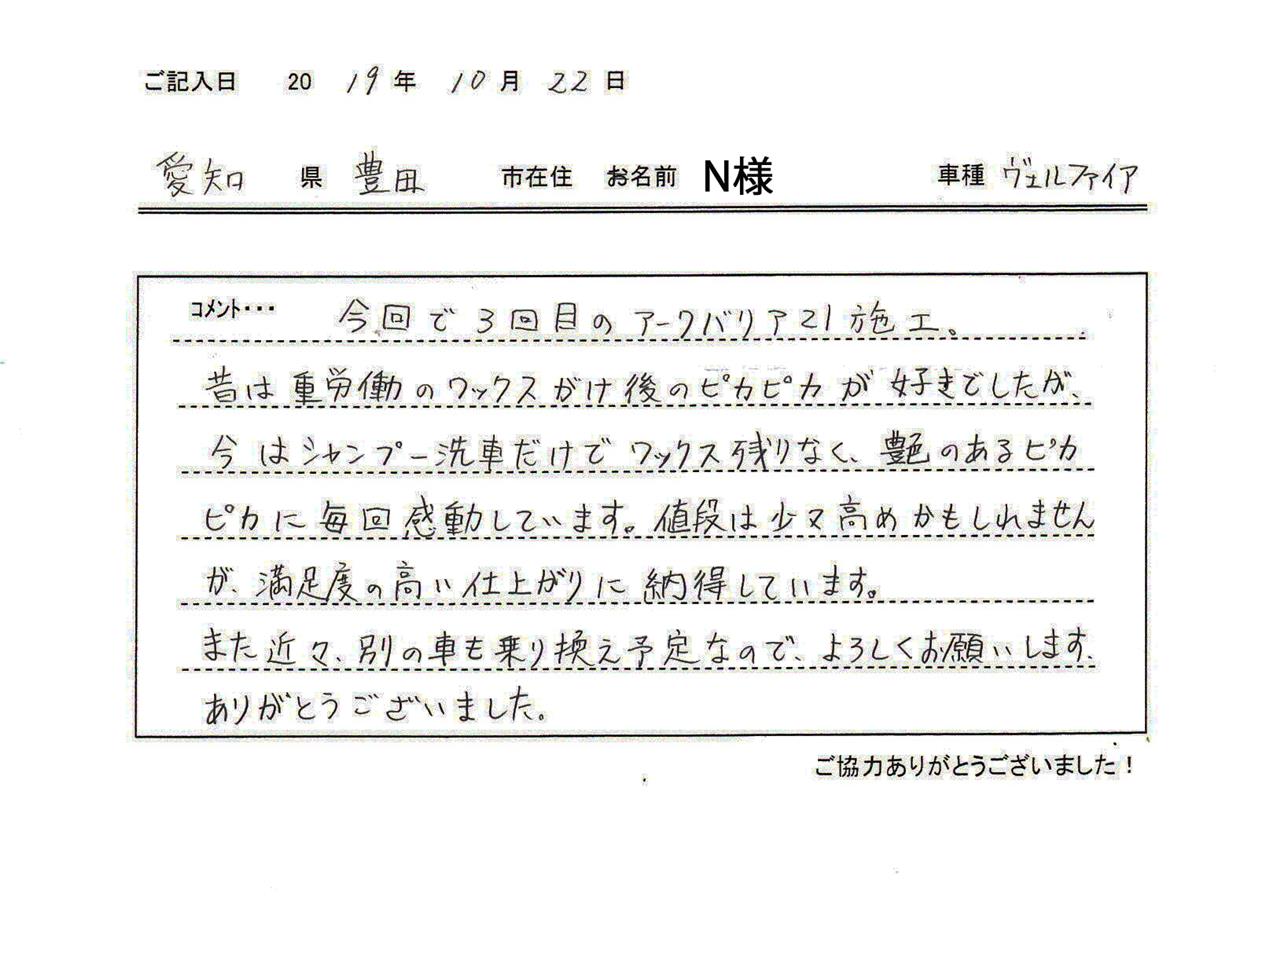 ご記入日 2019年10月22日
愛知県 豊田市在住 お名前 N様 車種 ヴェルファイア
コメント・・・ 今回で3回目のアークバリア21施工。
昔は重労働のワックスがけ後のピカピカが好きでしたが、
今はシャンプー洗車だけでワックス残りなく、艶のあるピカ
ピカに毎回感動しています。値段は少々高めかもしれません
が、満足度の高い仕上がりに納得しています。
また近々、別の車も乗り換え予定なので、よろしくお願いします、
ありがとうございました。
ご協力ありがとうございました！